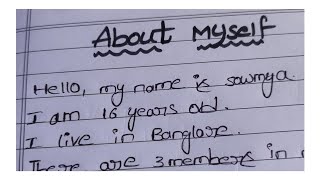 About Myself
Hello, my name is sowmya.
I am 16 years old.
I live in Banglore.
There are 3 members in